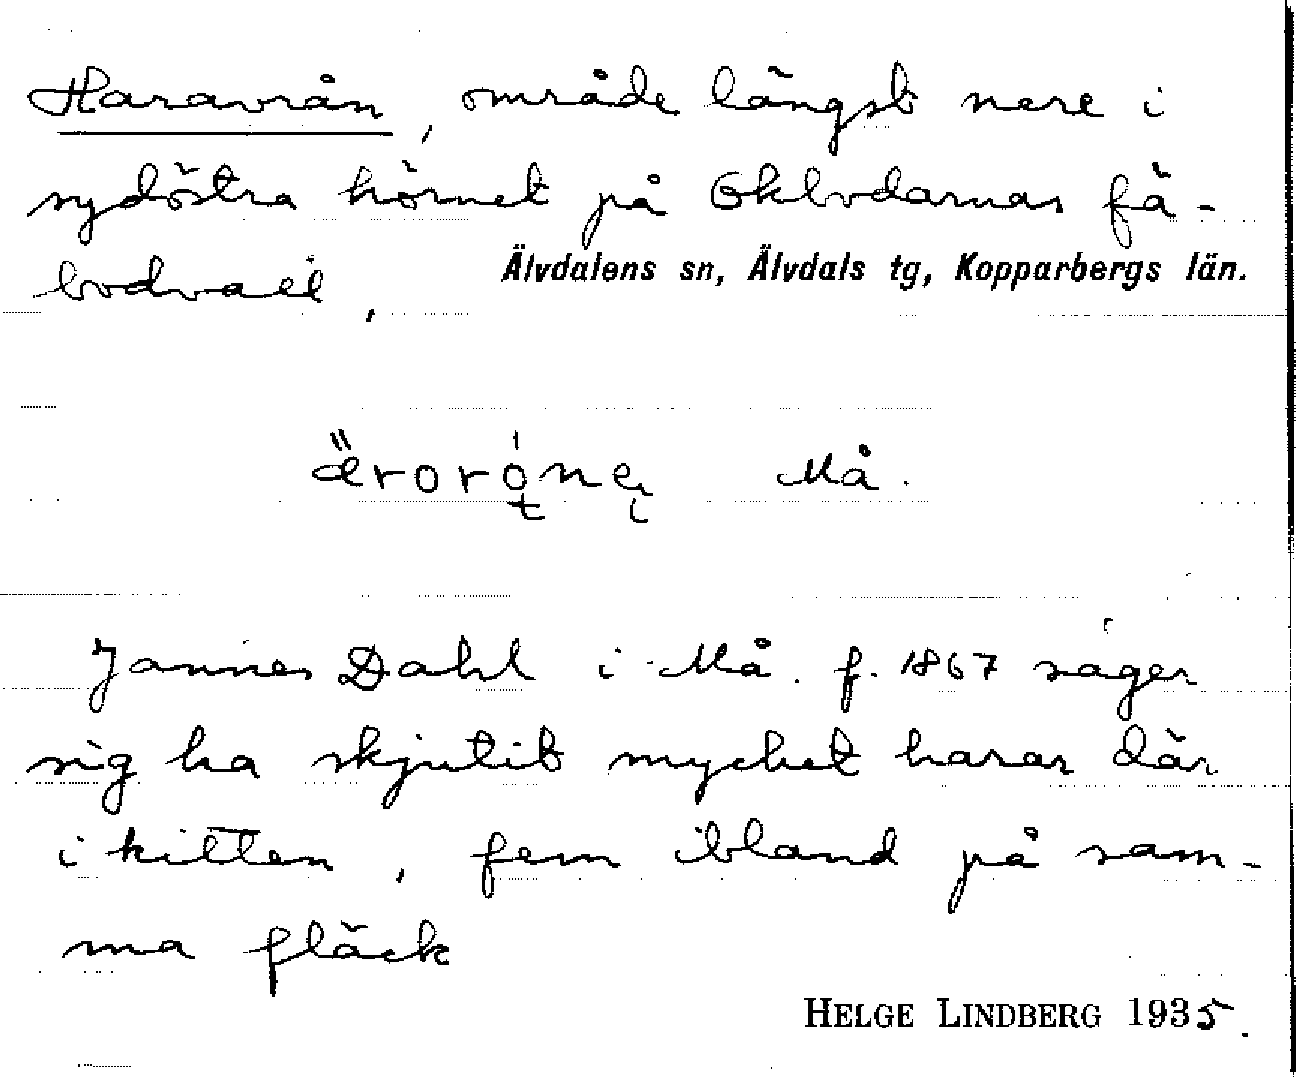 Haravrån, område längst nere i
sydöstra hörnet på Eklvdarnas fä-
bodvall,
Älvdalens sn, Älvdals tg, Kopparbergs län.
Må.
Jannes Dahl i Må. f. 1867 säger
sig ha skjutit mycket harar där
i kitten, fem ibland på sam-
ma fläck
HELGE LINDBERG 1935.